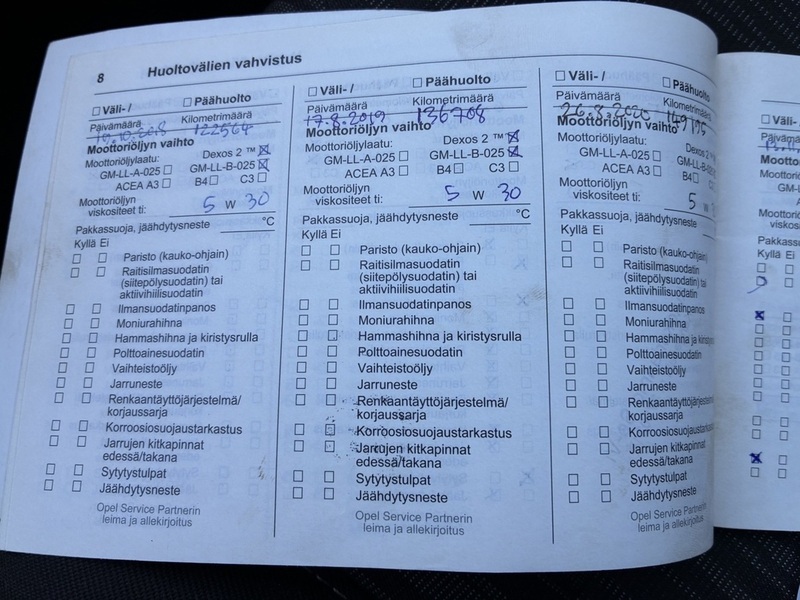 8 Huoltovälien vahvistus
☐ Väli- / ☐ Päähuolto
Päivämäärä Kilometrimäärä
122564
Moottoriöljyn vaihto
Moottoriöljylaatu: Dexos 2 ™ ☒
GM-LL-A-025 ☐ GM-LL-B-025 ☒
ACEA A3 ☐ B4 ☐ C3 ☐
Moottoriöljyn
viskositeet ti: 5 W 30
Pakkassuoja, jäähdytysneste °C
Kyllä Ei
☐ ☐ Paristo (kauko-ohjain)
☐ ☐ Raitisilmasuodatin
(siitepölysuodatin) tai
aktiivihiilisuodatin
☐ ☐ Ilmansuodatinpanos
☐ ☐ Moniurahihna
☐ ☐ Hammashihna ja kiristysrulla
☐ ☐ Polttoainesuodatin
☐ ☐ Vaihteistoöljy
☐ ☐ Jarruneste
☐ ☐ Renkaantäyttöjärjestelmä/
korjaussarja
☐ ☐ Korroosiosuojaustarkastus
☐ ☐ Jarrujen kitkapinnat
edessä/takana
☐ ☐ Sytytystulpat
☐ ☐ Jäähdytysneste
Opel Service Partnerin
leima ja allekirjoitus
☐ Väli- / ☐ Päähuolto
Päivämäärä Kilometrimäärä
17.8.2019 136708
Moottoriöljyn vaihto
Moottoriöljylaatu: Dexos 2 ™ ☒
GM-LL-A-025 ☐ GM-LL-B-025 ☒
ACEA A3 ☐ B4 ☐ C3 ☐
Moottoriöljyn
viskositeet ti: 5 W 30
Pakkassuoja, jäähdytysneste °C
Kyllä Ei
☐ ☐ Paristo (kauko-ohjain)
☐ ☐ Raitisilmasuodatin
(siitepölysuodatin) tai
aktiivihiilisuodatin
☐ ☐ Ilmansuodatinpanos
☐ ☐ Moniurahihna
☐ ☐ Hammashihna ja kiristysrulla
☐ ☐ Polttoainesuodatin
☐ ☐ Vaihteistoöljy
☐ ☐ Jarruneste
☐ ☐ Renkaantäyttöjärjestelmä/
korjaussarja
☐ ☐ Korroosiosuojaustarkastus
☐ ☐ Jarrujen kitkapinnat
edessä/takana
☐ ☐ Sytytystulpat
☐ ☐ Jäähdytysneste
Opel Service Partnerin
leima ja allekirjoitus
☐ Väli- / ☐ Päähuolto
Päivämäärä Kilometrimäärä
26.8.2020 149195
Moottoriöljyn vaihto
Moottoriöljylaatu: Dexos 2
GM-LL-A-025 ☐ GM-LL-B-025
ACEA A3 ☐ B4 ☐ C3
Moottoriöljyn
viskositeet ti: 5 W
Pakkassuoja, jäähdytysneste
Kyllä Ei
☐ ☐ Paristo (kauko-ohjain)
☐ ☐ Raitisilmasuodatin
(siitepölysuodatin) tai
aktiivihiilisuodatin
☐ ☐ Ilmansuodatinpanos
☐ ☐ Moniurahihna
☐ ☐ Hammashihna ja
☐ ☐ Polttoainesuodatin
☐ ☐ Vaihteistoöljy
☐ ☐ Jarruneste
☐ ☐ Renkaantäyttöjärjestelmä/
korjaussarja
☐ ☐ Korroosiosuojaustarkastus
☐ ☐ Jarrujen kitkapinnat
edessä/takana
☐ ☐ Sytytystulpat
☐ ☐ Jäähdytysneste
Opel Service Partnerin
leima ja allekirjoitus
Kyllä Ei